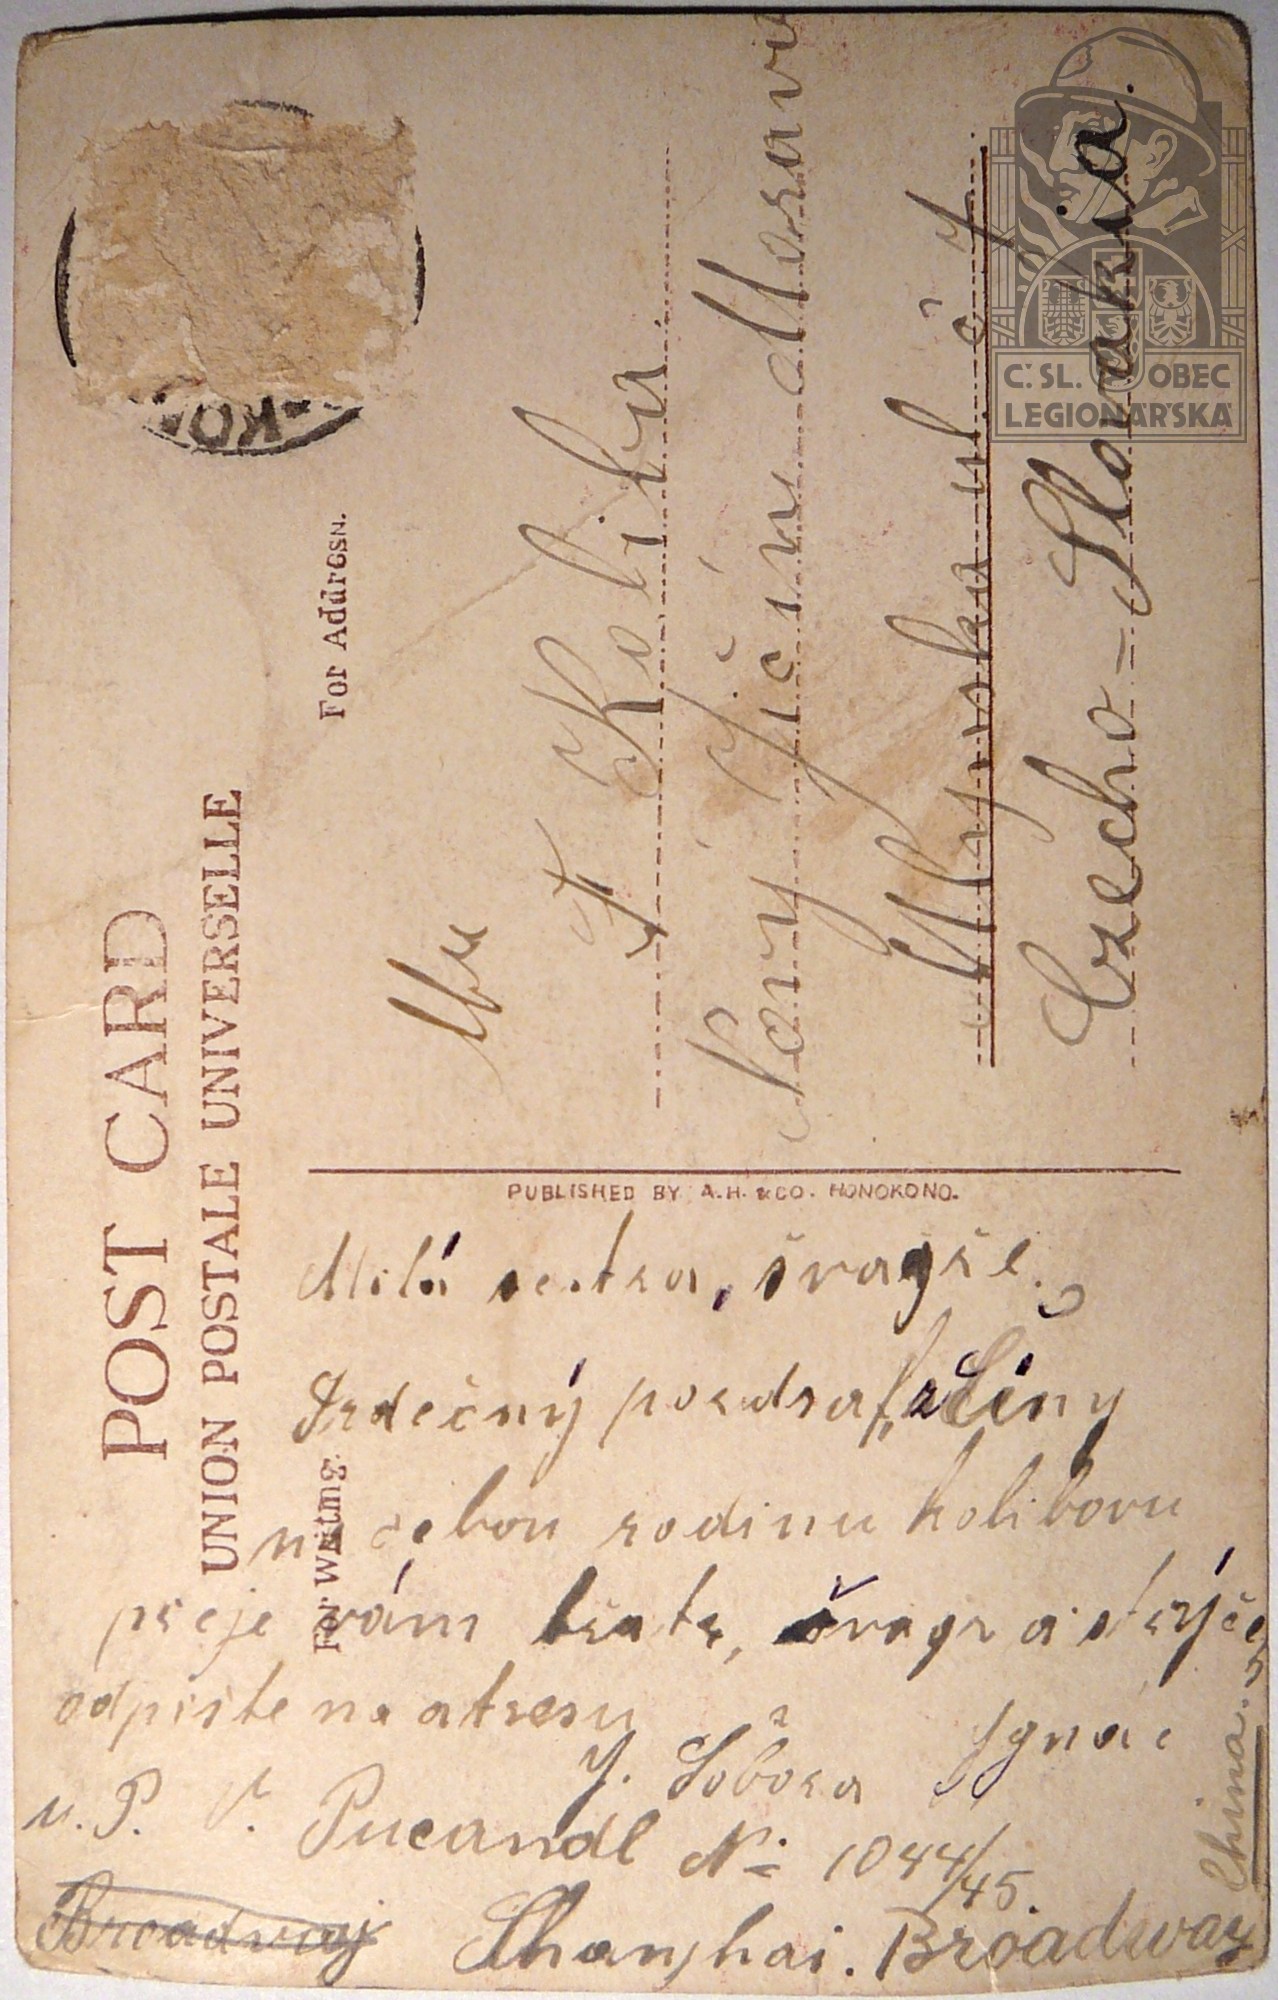 POST CARD
UNION POSTALE UNIVERSELLE
For Address.
KON
F Koliba
Nový Jičín Morava
Mlýnská ul. č 7
Czecho-Slovakia.
C.SL. OBEC
LEGIONÁŘSKÁ
PUBLISHED BY A.H. & CO. HONGKONG.
For Writing.
Milá sestra, švagře.
Srdečný pozdraf z Číny
na celou rodinu kolibovu
přeje vám bratr, švagr a strýček
odpište na atresu Ignác
J. Sobora
u. P. Pucandl No 1044/45.
Broadway Shanghai. Broadway
China.